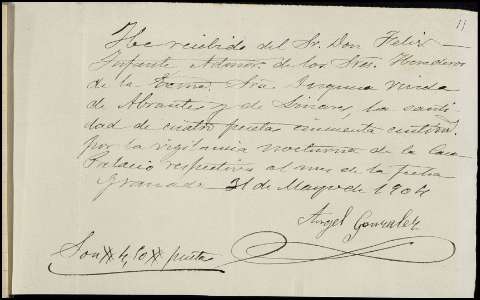 11
He recibido del Sr. Don Felix
Infante Admor. de los Sres. Herederos
de la Exma. Sra. Duquesa Viuda
de Abrantes y de Linares, la canti
dad de cuatro pesetas cincuenta centims.
por la vigilancia nocturna de la Casa
Palacio respectiva al mes de la fecha
Granada 31 de Mayo de 1904
Angel Gonzalez
Son # 4,50 # pesetas